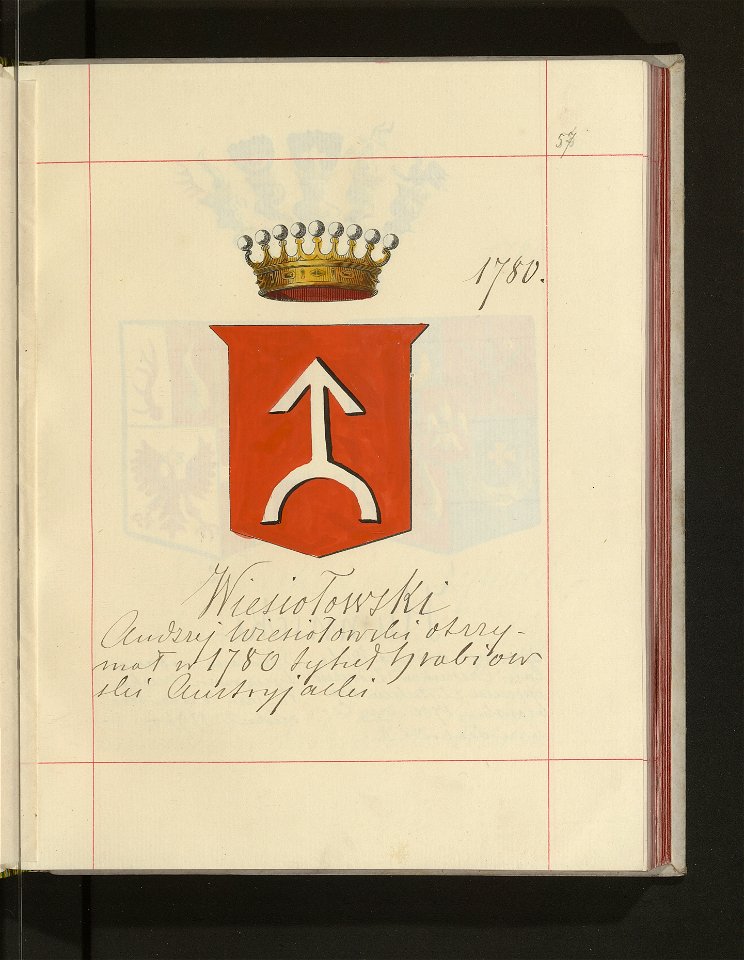 57
1780.
Wiesiołowski
Andrzej Wiesiołowski otrzy-
mał w 1780 tytuł hrabiow
ski Austryjacki